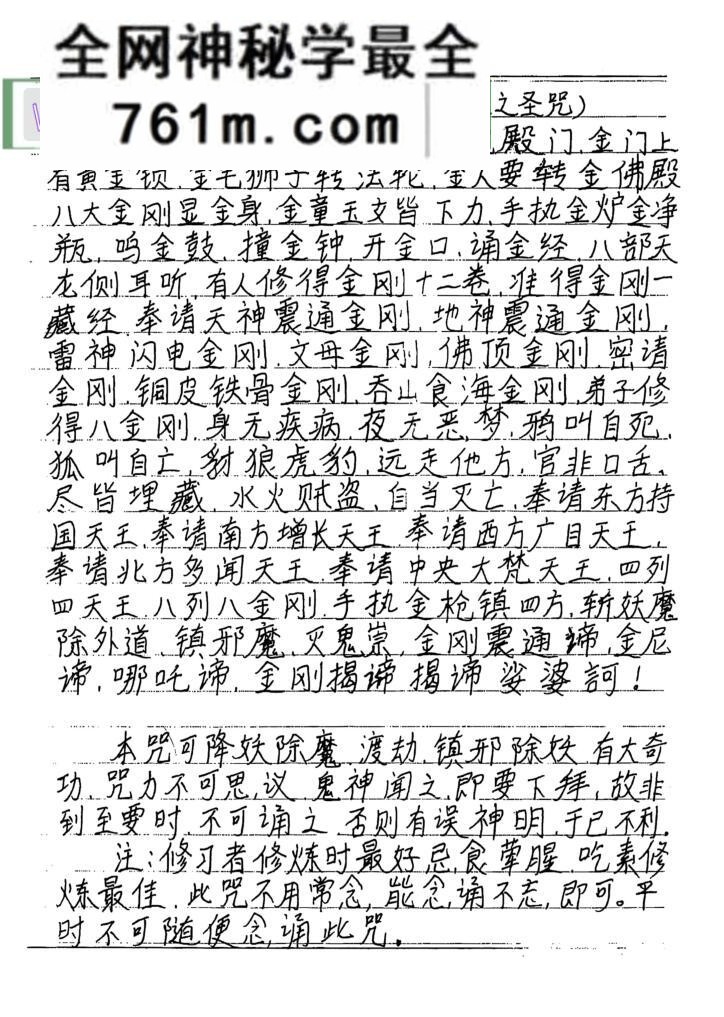 全网神秘学最全
761m.com
之圣咒)
殿门.金门上
有黄金锁.金毛狮子转法轮,金人要转金佛殿
八大金刚显金身,金童玉女皆下力,手执金炉金净
瓶,鸣金鼓,撞金钟,开金口,诵金经,八部天
龙侧耳听,有人修得金刚十二卷,准得金刚一
藏经 奉请天神震通金刚,地神震通金刚,
雷神闪电金刚,文母金刚,佛顶金刚 密请
金刚,铜皮铁骨金刚,吞山食海金刚,弟子修
得八金刚,身无疾病,夜无恶梦,鸦叫自死,
狐叫自亡,豺狼虎豹,远走他方,官非口舌、
尽皆埋藏,水火贼盗,自当灭亡,奉请东方持
国天王,奉请南方增长天王 奉请西方广目天王,
奉请北方多闻天王 奉请中央大梵天王,四列
四天王 八列八金刚,手执金枪镇四方,斩妖魔
除外道,镇邪魔,灭鬼祟,金刚震通谛,金尼
谛,哪吒谛,金刚揭谛揭谛 娑婆訶!
本咒可降妖除魔,渡劫,镇邪除妖 有大奇
功,咒力不可思议 鬼神闻之,即要下拜,故非
到至要时,不可诵之 否则有误神明,于己不利.
注:修习者修炼时最好忌食荤腥,吃素修
炼最佳 此咒不用常念,能念诵不忘,即可。平
时不可随便念诵此咒.